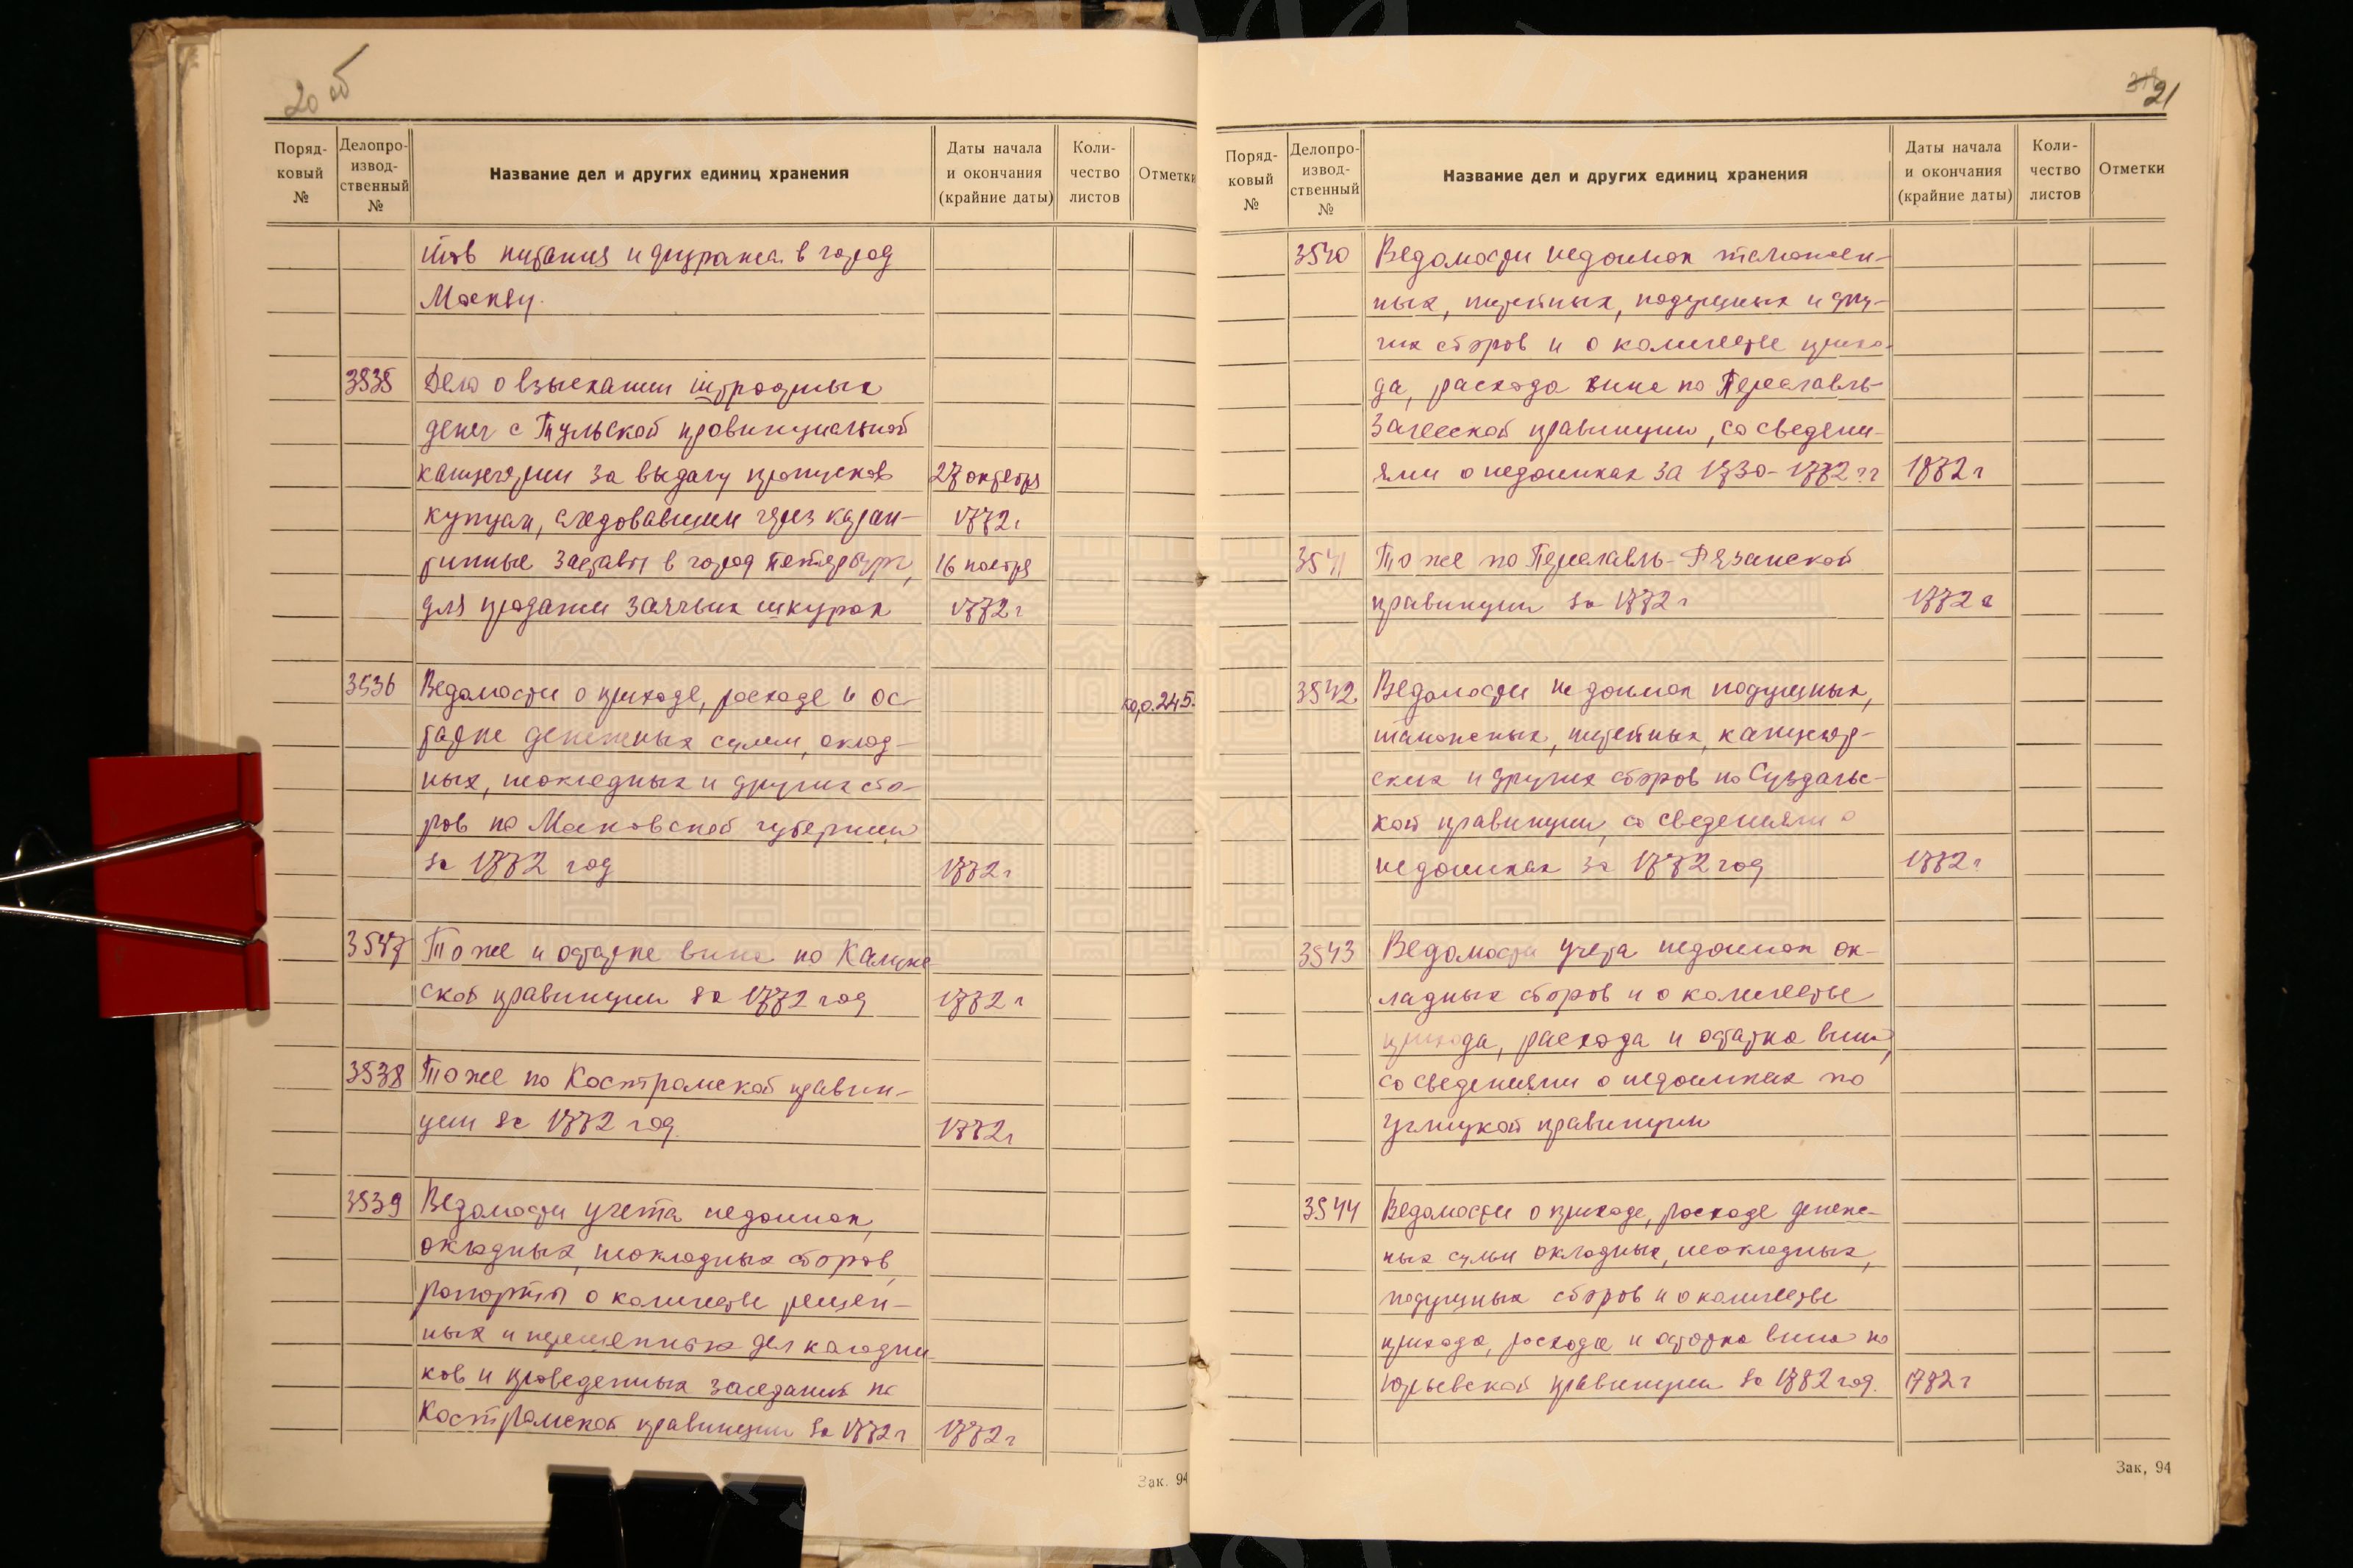 20 об
Поряд-
ковый
№
Делопро-
извод-
ственный
№
Название дел и других единиц хранения
Даты начала
и окончания
(крайние даты)
Коли-
чество
листов
Отметки
тов питания и фуража в город
Москву.
3535 Дело о взыскании штрафных
денег с Тульской провинциальной
канцелярии за выдачу пропусков 27 октября
купцам, следовавшим через каран- 1772г
тинные заставы в город Петербург, 16 ноября
для продажи заячьих шкурок 1772г
3536 Ведомости о приходе, расходе и ос- кор. 245.
татке денежных сумм, оклад-
ных, неокладных и других сбо-
ров по Московской губернии
за 1772 год 1772г
3537 То же и остатке вина по Калуж
ской провинции за 1772 год 1772г
3538 То же по Костромской провин-
ции за 1772 год 1772г
3539 Ведомости учета недоимок,
окладных, неокладных сборов,
рапорты о количестве решен-
ных и нерешенных дел колодни
ков и проведенных заседаний по
Костромской провинции за 1772г 1772г
Зак. 94
21
Поряд-
ковый
№
Делопро-
извод-
ственный
№
Название дел и других единиц хранения
Даты начала
и окончания
(крайние даты)
Коли-
чество
листов
Отметки
3540 Ведомости недоимок таможен-
ных, питейных, подушных и дру-
гих сборов и о количестве прихо-
да, расхода вина по Переславль-
Залесской провинции, со сведени-
ями о недоимках за 1730-1772 гг 1772г
3541 То же по Переславль-Рязанской
провинции за 1772г 1772г
3542 Ведомости недоимок подушных,
таможеных, питейных, канцеляр-
ских и других сборов по Суздальс-
кой провинции, со сведениями о
недоимках за 1772 год 1772г
3543 Ведомости учета недоимок ок-
ладных сборов и о количестве
прихода, расхода и остатка вина,
со сведениями о недоимках по
Углицкой провинции
3544 Ведомости о приходе, расходе денеж-
ных сумм окладных, неокладных,
подушных сборов и о количестве
прихода, расхода и остатка вина по
Юрьевской провинции за 1772 год. 1772г
Зак. 94